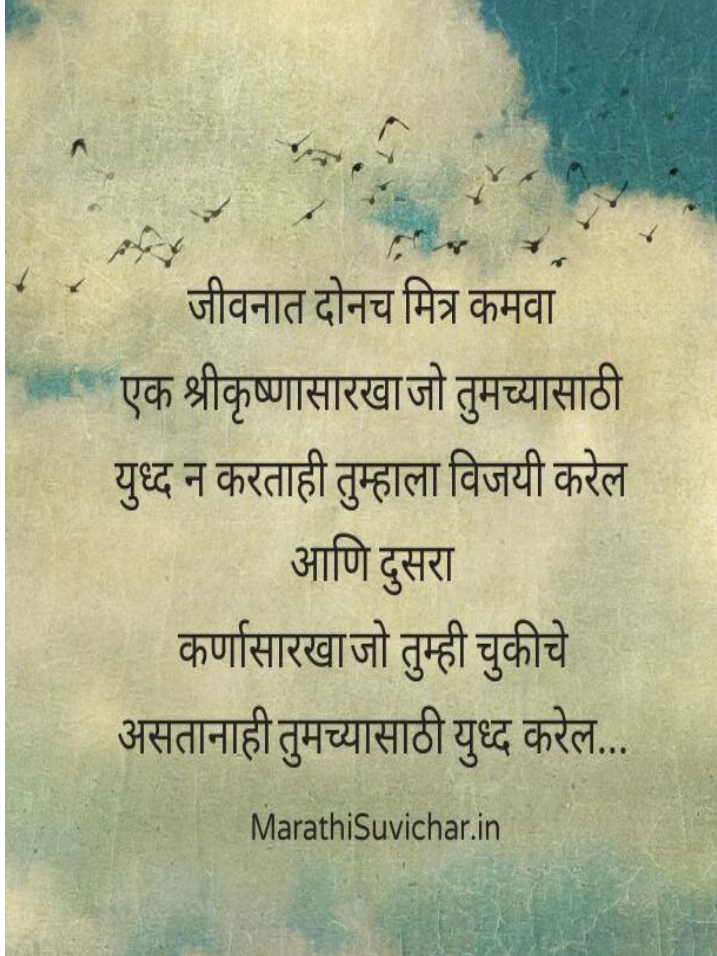 जीवनात दोनच मित्र कमवा
एक श्रीकृष्णासारखा जो तुमच्यासाठी
युध्द न करताही तुम्हाला विजयी करेल
आणि दुसरा
कर्णासारखा जो तुम्ही चुकीचे
असतानाही तुमच्यासाठी युध्द करेल...
MarathiSuvichar.in